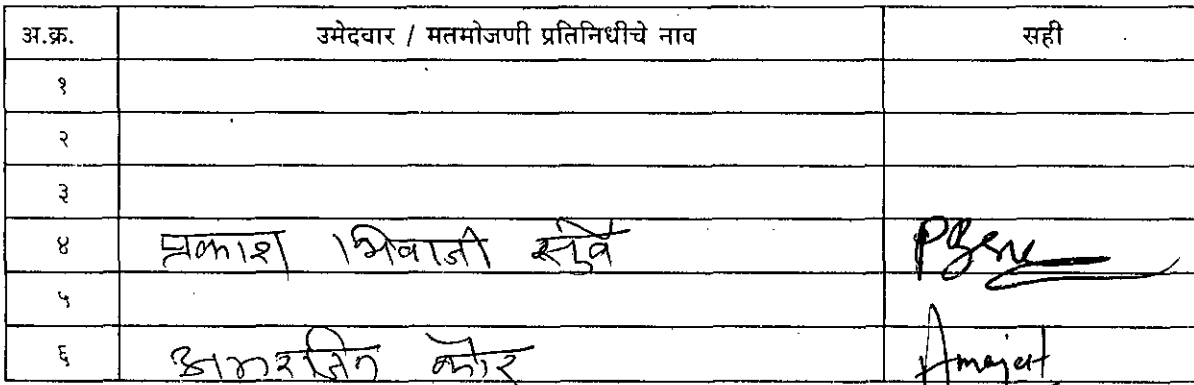 अ.क्र. उमेदवार / मतमोजणी प्रतिनिधीचे नाव सही
१
२
३
४ प्रकाश भिवाजी सुर्वे
५
६ अमरजित कौर Amarjeet